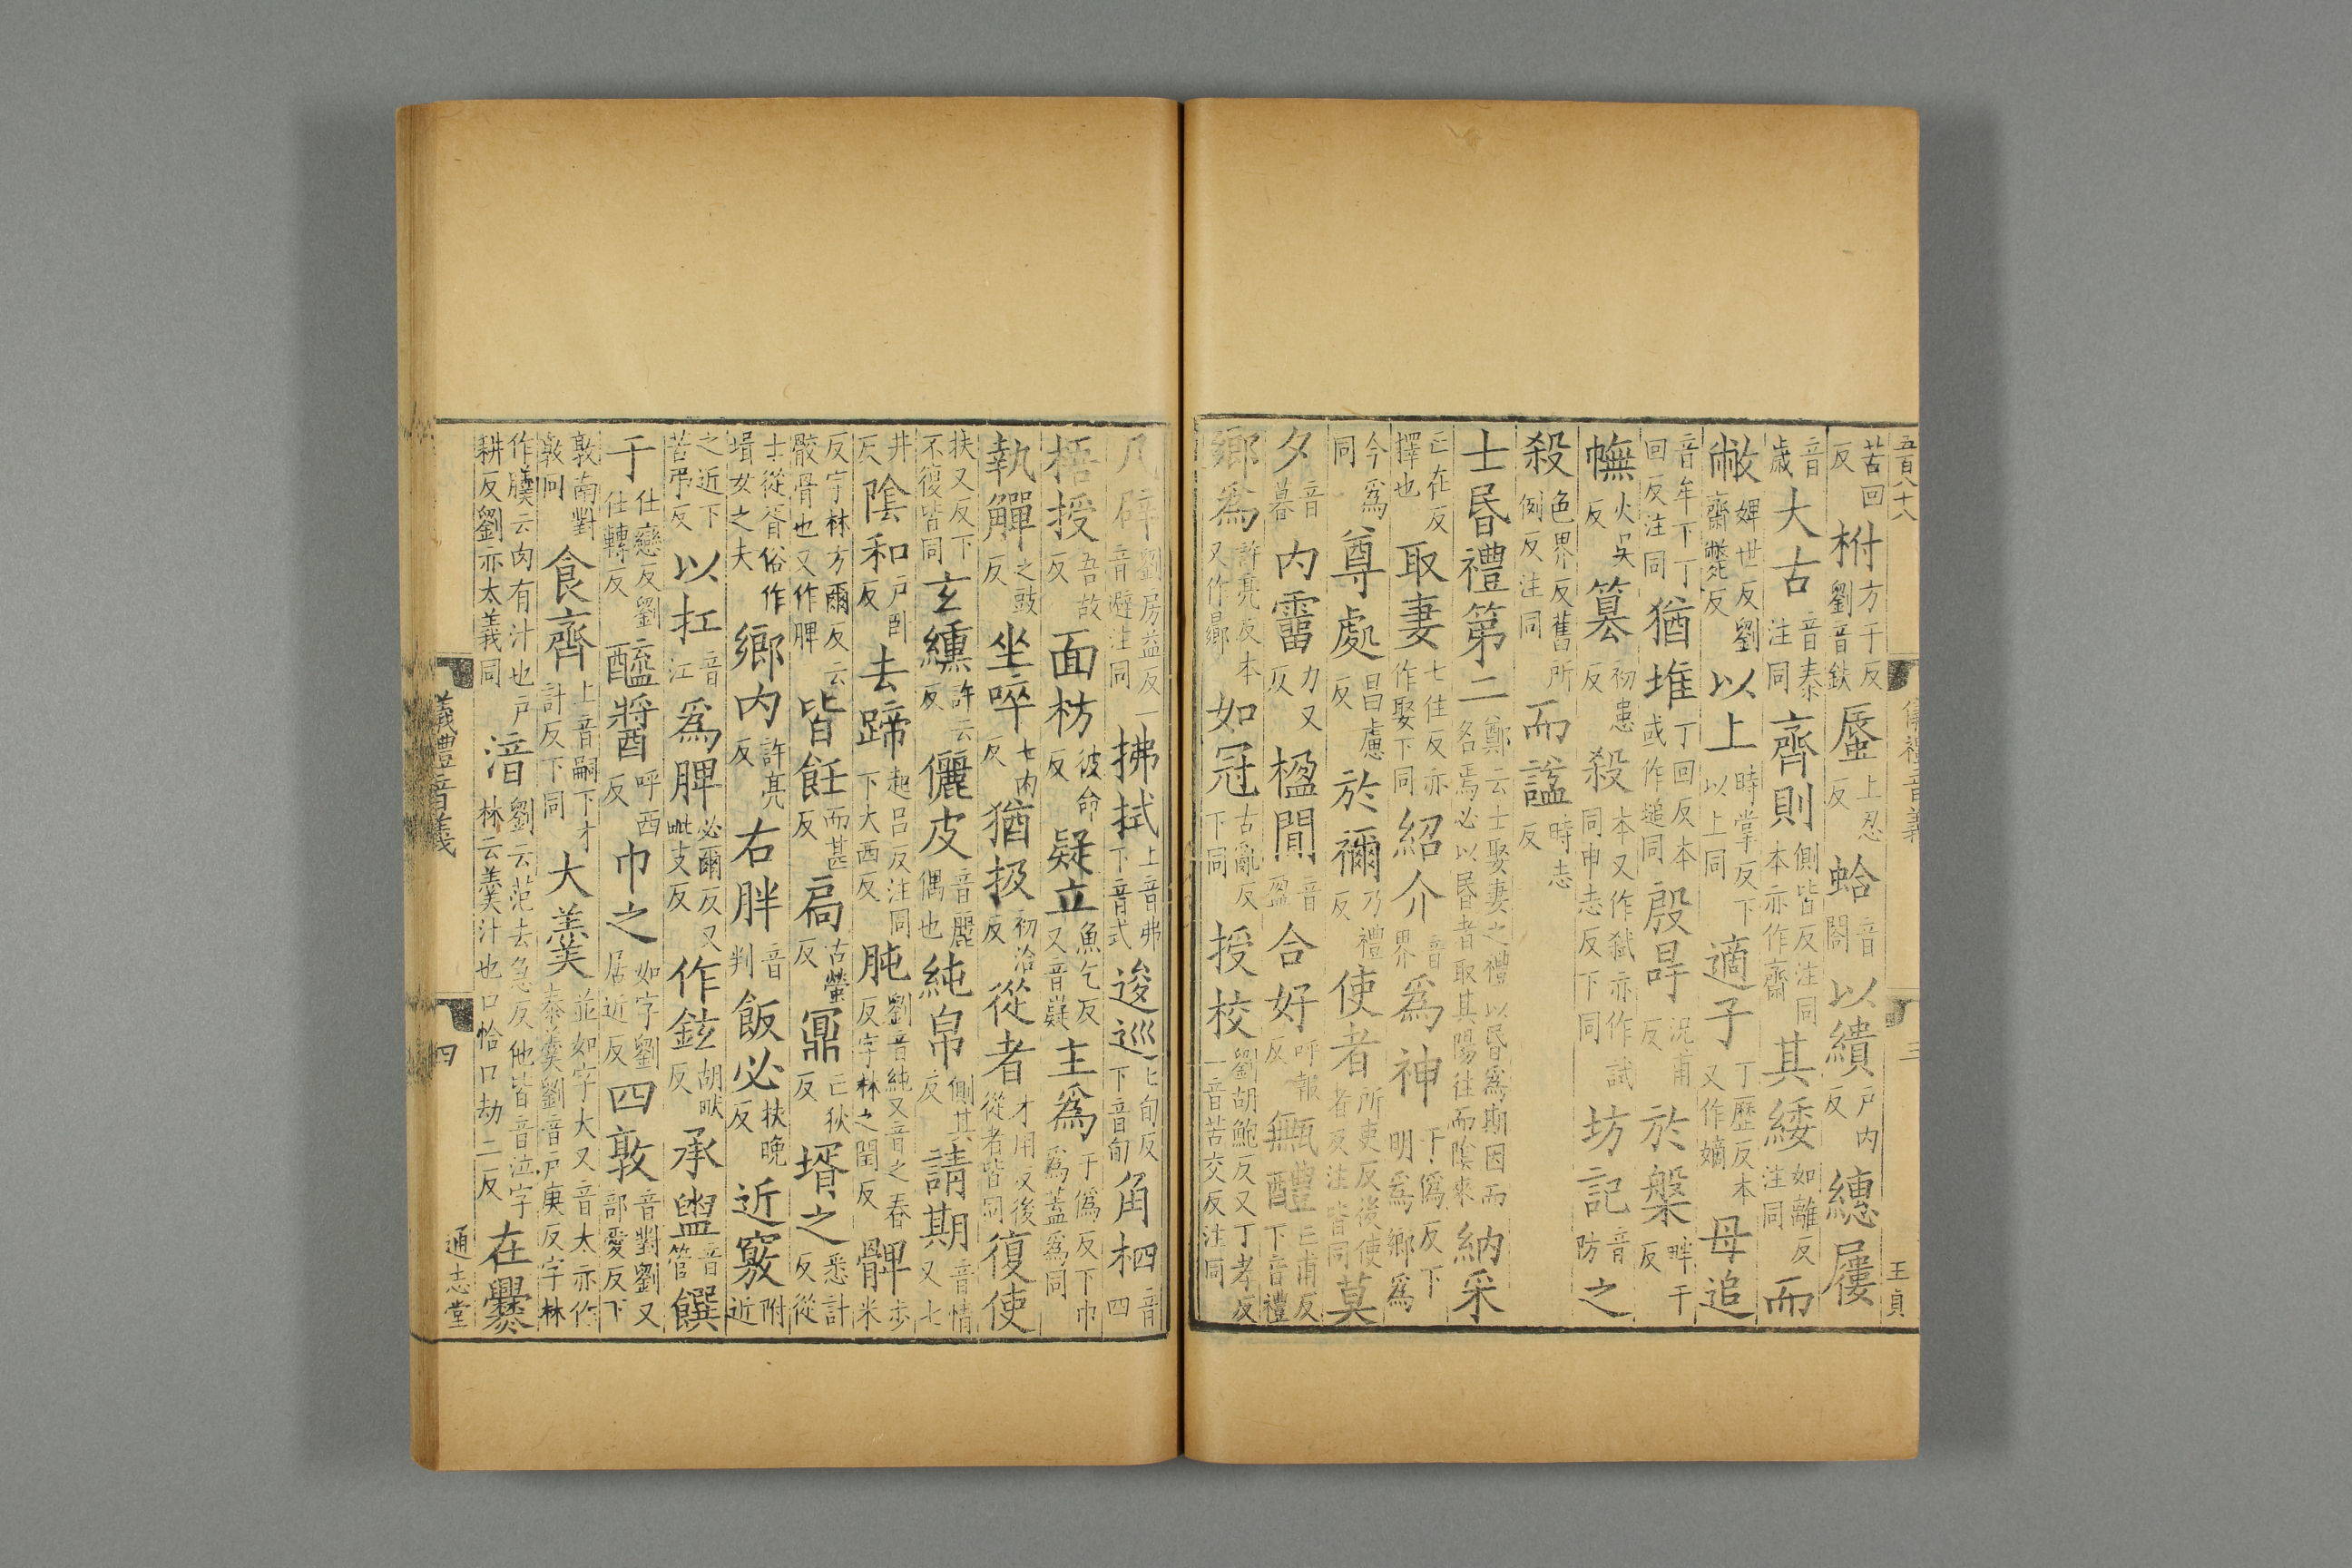 五百八十八 儀禮音義 三 王貞
苦回反 柎 方于反劉音鈇 蜃 上忍反 蛤 音閤 以繢 户内反 繶屨
音歲 大古 音泰注同 齊則 側皆反注同本亦作齋 其緌 如離反注同 而
敝 婢世反劉齋斃反 以上 時掌反下以上同 適子 丁歷反本又作嫡 母追
音牟下丁回反注同 猶堆 丁回反本或作塠同 殷冔 況甫反 於槃 畔干反
幠 火吴反 篡 初患反 殺 本又作弑亦作試同申志反下同 坊記 音防 之
殺 色界反舊所例反注同 而諡 時志反
士昏禮第二 鄭云士娶妻之禮以昏爲期因而名焉必以昏者取其陽往而陰來 納采
亡在反擇也 取妻 七住反亦作娶下同 紹介 音界 爲神 于僞反下明爲鄉爲
今爲同 尊處 昌慮反 於禰 乃禮反 使者 所吏反後使者反注皆同 莫
夕 音暮 内霤 力又反 楹間 音盈 合好 呼報反 甒醴 亡甫反下音禮
鄉爲 許亮反本又作曏 如冠 古亂反下同 授校 劉胡鮑反又丁孝反一音苦交反注同
几辟 劉房益反一音避注同 拂拭 上音弗下音式 逡巡 七旬反下音旬 角柶 音四
梧授 吾故反 面枋 彼命反 疑立 魚乞反又音嶷 主爲 于僞反下巾爲蓋爲同
執觶 之豉反 坐啐 七内反 猶扱 初洽反 從者 才用反後從者皆同 復使
扶又反下不復皆同 玄纁 許云反 儷皮 音麗偶也 純帛 側其反 請期 音情又七
井反 陰和 户卧反 去蹄 起呂反注同下大西反 肫 劉音純又音之春反字林之閏反 髀 步米
反字林方爾反云骰骨也又作脾 皆飪 而甚反 扃 古螢反 鼏 亡狄反 壻之 悉計反從
士從胥俗作壻女之夫 鄉内 許亮反 右胖 音判 飯必 扶晚反 近竅 附近
之近下苦弔反 以扛 音江 爲脾 必爾反又毗支反 作鉉 胡畎反 承盥 音管 饌
于 仕戀反劉仕轉反 醯醬 呼西反 巾之 如字劉居近反 四敦 音對劉又部愛反下
敦南對敦同 食齊 上音嗣下才計反下同 大羹 並如字大又音太亦作泰羹劉音户庚反字林
作䐨云肉有汁也户耕反劉亦太義同 湆 劉云范去急反他皆音泣字林云羹汁也口恰口劫二反 在爨
儀禮音義 四 通志堂